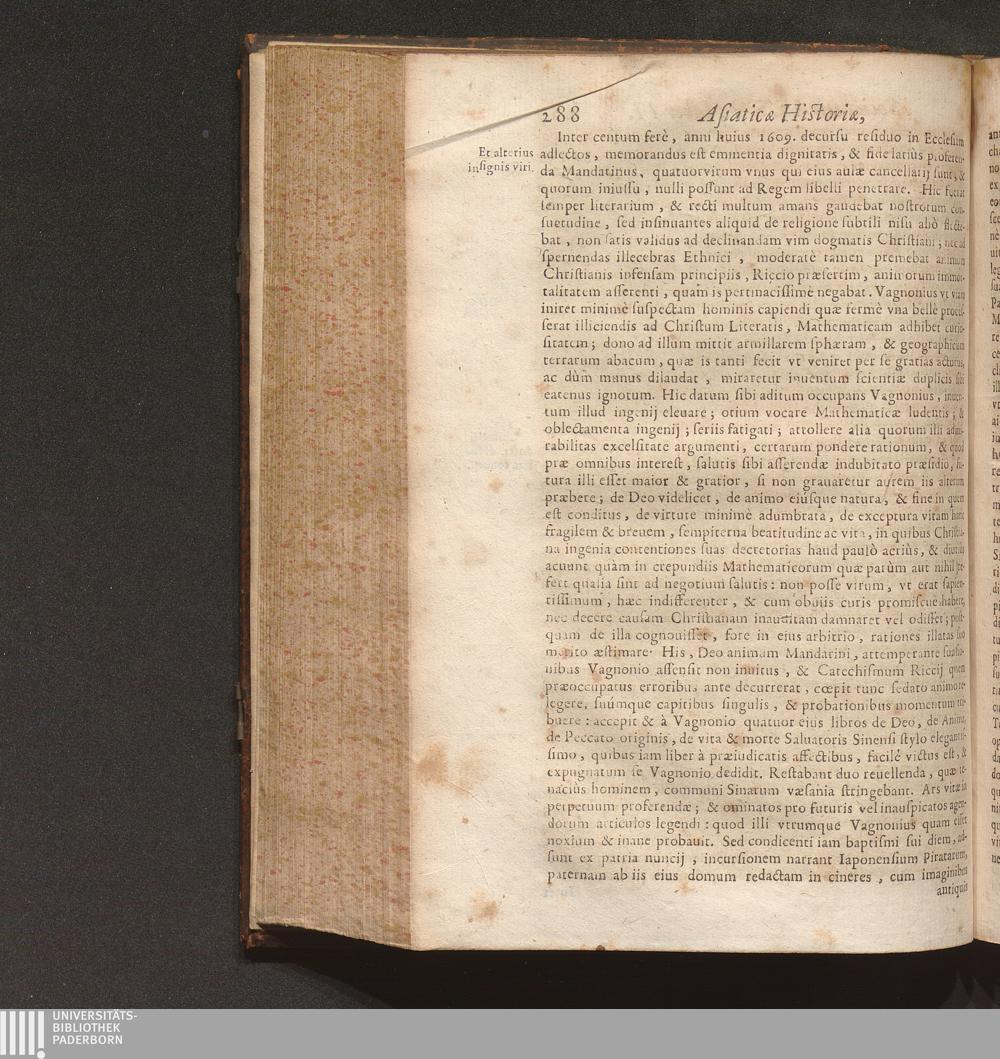 288
Asiaticæ Historiæ,
Et alterius
insignis viri.
Inter centum ferè, anni huius 1609. decursu residuo in Ecclesiam
adlectos, memorandus est eminentia dignitatis, & fide latius proferen-
da Mandarinus, quatuorvirum vnus qui eius aulæ cancellarij sunt, &
quorum iniussu, nulli possunt ad Regem libelli penetrare. Hic fuerat
semper literarium, & recti multum amans gaudebat nostrorum con-
suetudine, sed insinuantes aliquid de religione subtili nisu aliò flecte-
bat, non satis validus ad declinandam vim dogmatis Christiani; nec ad
spernendas illecebras Ethnici, moderatè tamen premebat animum
Christianis infensam principiis, Riccio præsertim, animorum immor-
talitatem asserenti, quam is pertinacissimè negabat. Vagnonius vt viam
iniret minimè suspectam hominis capiendi quæ fermè vna bellè proces-
serat illiciendis ad Christum Literatis, Mathematicam adhibet curio-
sitatem; dono ad illum mittit armillarem sphæram, & geographicum
terrarum abacum, quæ is tanti fecit vt veniret per se gratias acturus,
ac dùm munus dilaudat, miraretur inuentum scientiæ duplicis sibi
eatenus ignotum. Hic datum sibi aditum occupans Vagnonius, inuen-
tum illud ingenij eleuare; otium vocare Mathematicæ ludentis; &
oblectamenta ingenij; seriis fatigati; attollere alia quorum illi admi-
rabilitas excelsitate argumenti, certarum pondere rationum, & quod
præ omnibus interest, salutis sibi asserendæ indubitato præsidio, fu-
tura illi esset maior & gratior, si non grauaretur aurem iis alteram
præbere; de Deo videlicet, de animo eiúsque natura, & fine in quem
est conditus, de virtute minimè adumbrata, de exceptura vitam hanc
fragilem & breuem, sempiterna beatitudine ac vita, in quibus Christia-
na ingenia contentiones suas decretorias haud paulò acriùs, & diutiùs
acuunt quàm in crepundiis Mathematicorum quæ parùm aut nihil
fert qualia sint ad negotium salutis: non posse virum, vt erat sapien-
tissimum, hæc indifferenter, & cum obuiis curis promiscuè habere,
nec decere causam Christianam inauditam damnaret vel odisset; post-
quam de illa cognouisset, fore in eius arbitrio, rationes illatas suo
merito æstimare. His, Deo animum Mandarini, attemperante suasio-
nibus Vagnonio assensit non inuitus, & Catechismum Riccij quem
præoccupatus erroribus ante decurrerat, cœpit tunc sedato animo re-
legere, suúmque capitibus singulis, & probationibus momentum tri-
buere: accepit & à Vagnonio quatuor eius libros de Deo, de Anima,
de Peccato originis, de vita & morte Saluatoris Sinensi stylo elegantis-
simo, quibus iam liber à præiudicatis affectibus, facilè victus est, &
expugnatum se Vagnonio dedidit. Restabant duo reuellenda, quæ te-
naciùs hominem, communi Sinarum væsania stringebant. Ars vitæ in
perpetuum proferendæ; & ominatos pro futuris vel inauspicatos agen-
dorum articulos legendi: quod illi vtrumque Vagnonius quam esset
noxium & inane probauit. Sed condicenti iam baptismi sui diem, ad-
sunt ex patria nuncij, incursionem narrant Iaponensium Piratarum,
paternam ab iis eius domum redactam in cineres, cum imaginibus
antiquis
UNIVERSITÄTS-
BIBLIOTHEK
PADERBORN